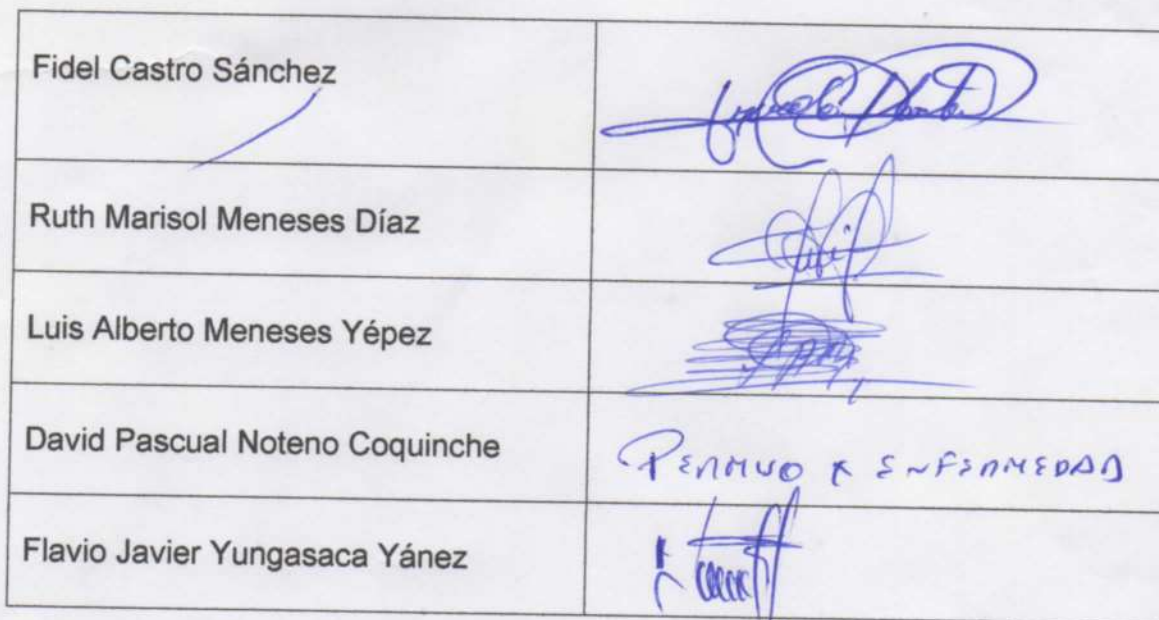 Fidel Castro Sánchez
Ruth Marisol Meneses Díaz
Luis Alberto Meneses Yépez
David Pascual Noteno Coquinche
PERMISO X ENFERMEDAD
Flavio Javier Yungasaca Yánez